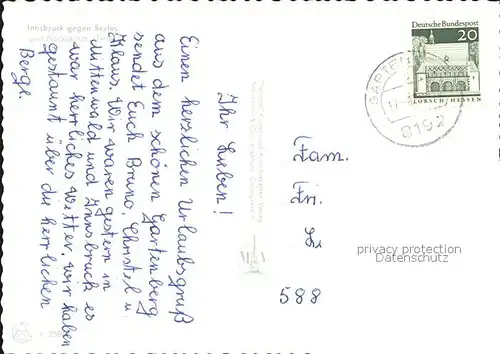 Innsbruck gegen Serles
Ihr Lieben!
Einen herzlichen Urlaubsgruß
aus dem schönen Gartenberg
sendet Euch Bruno, Christel u.
Klaus. Wir waren gestern in
Mittenwald und Innsbruck es
war herrliches Wetter, wir haben
gestaunt über die herrlichen
Berge.
Deutsche Bundespost
20
LORSCH/HESSEN
GARTEN
8192
Fam.
Fri.
588
privacy protection
Datenschutz